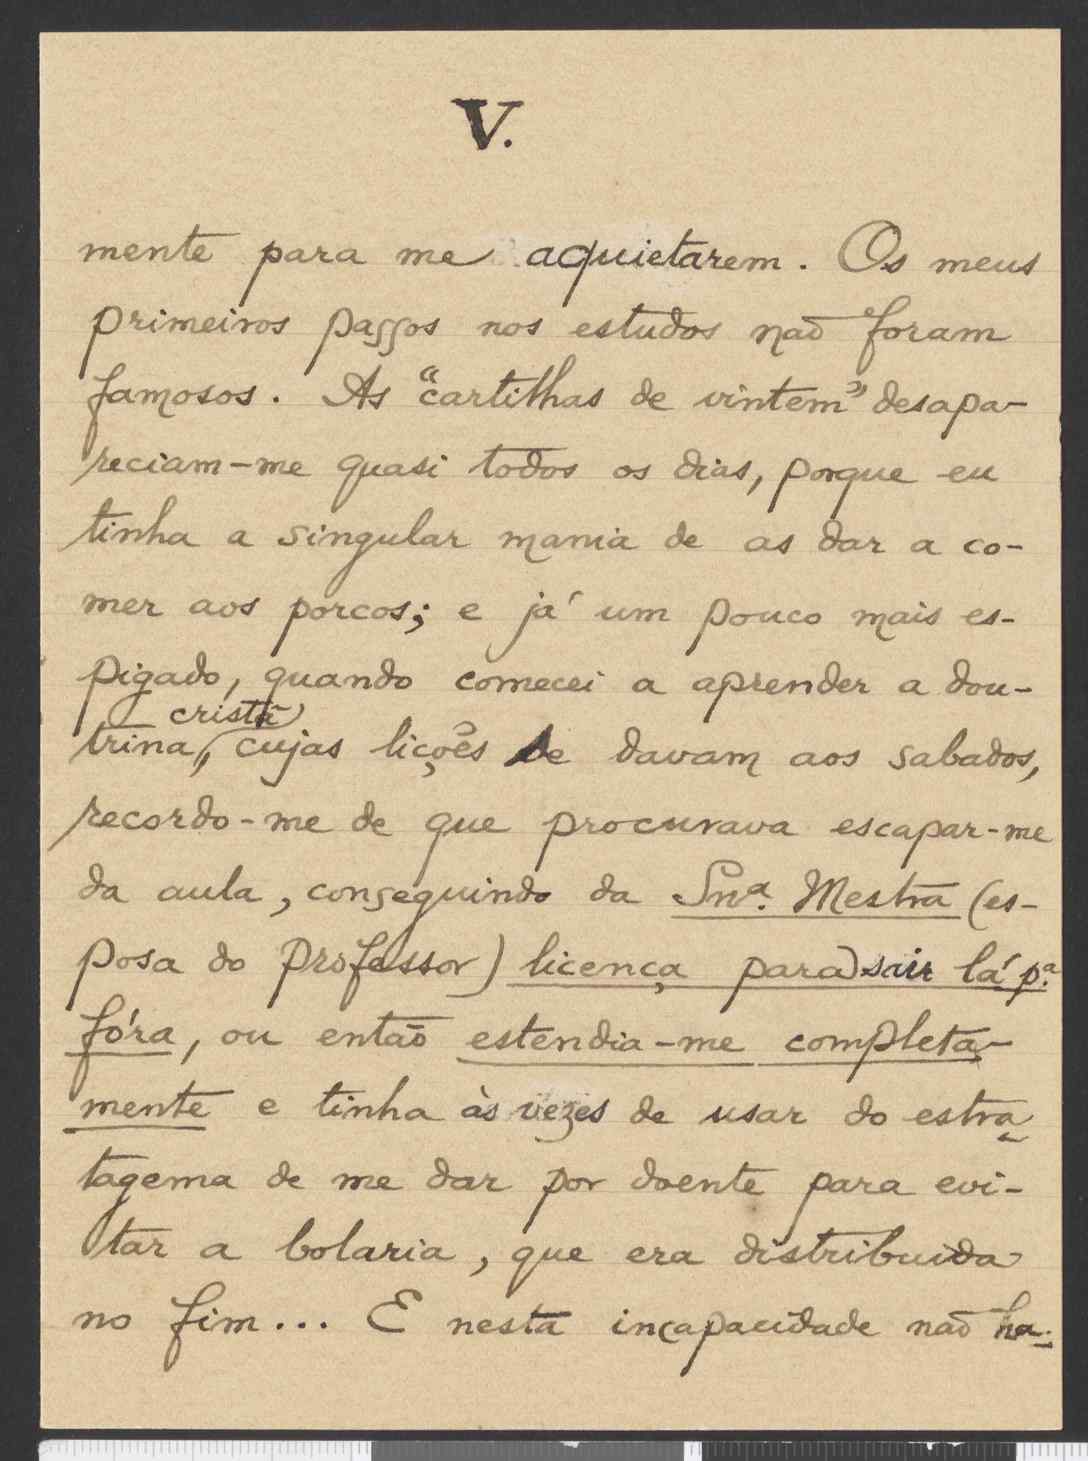 V.
mente para me aquietarem. Os meus
primeiros passos nos estudos não foram
famosos. As "cartilhas de vintem" desapa-
reciam-me quasi todos os dias, porque eu
tinha a singular mania de as dar a co-
mer aos porcos; e já um pouco mais es-
pigado, quando comecei a aprender a dou-
cristã
trina, cujas lições se davam aos sabados,
recordo-me de que procurava escapar-me
da aula, conseguindo da Snra. Mestra (es-
posa do professor) licença para sair lá p.a
fóra, ou então estendia-me completa-
mente e tinha às vezes de usar do estra-
tagema de me dar por doente para evi-
tar a bolaria, que era distribuida
no fim... E nesta incapacidade não ha-